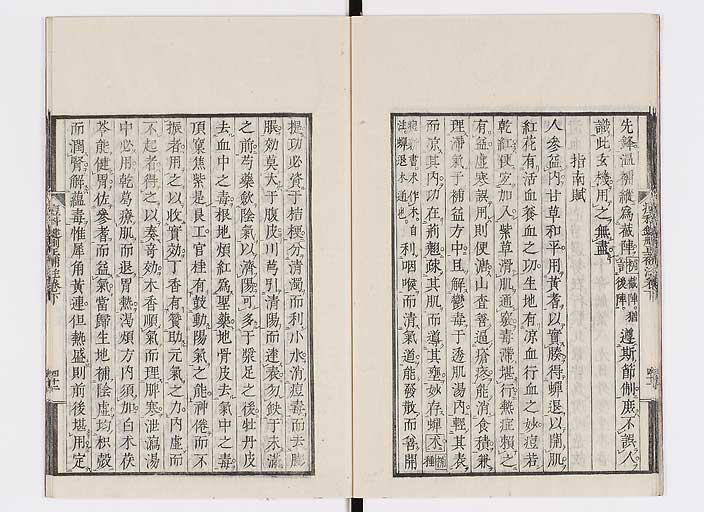 先鋒溫補縱爲截陣 截陣猶後陣 遵斯節制庶不誤人
識此玄機用之無盡
指南賦
人參益內甘草和平用黃耆以實腠得蟬退以開肌
紅花有活血養血之功生地有凉血行血之妙痘若
乾紅便宜加入紫草滑肌通竅毒滯堪行熱症賴之
有益虛寒誤用則便溏山查善逼瘡疹能消食積兼
理滯氣于補益方中且解鬱毒于透肌湯內輕其表
而凉其內功在荊翹疎其肌而導其壅妙存蟬
書木作 自利咽喉而清氣道能發散而善開
注蟬退木通也
提功必資于桔梗分清濁而利小水消痘毒而去膨
脹效莫大于腹皮川芎引清陽而達表勿缺于未滿
之前芍藥飮陰氣以濟陽可多于漿足之後牡丹皮
去血中之毒根地煩紅爲聖藥地骨皮去氣中之毒
頂窠焦紫是良工官桂有鼓動陽氣之能神倦而不
振者用之以收實効丁香有贊助元氣之力內虛而
不起者得之以奏奇効木香順氣而理脾寒泄瀉湯
中必用乾葛療肌而退胃熱渴煩方內須加白朮茯
苓能健胃佐參耆而益氣當歸生地補陰虛均枳殼
而潤腎解蘊毒惟犀角黃連但熱盛則前後堪用定
痘科鍵刪正補註卷下
四十二